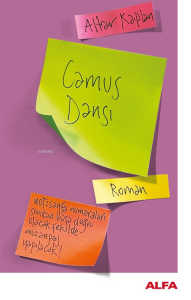 Altar Kaplan
Camus
Dansı
Roman
not: sayfa numaraları
sondan başa doğru
olacak şekilde
mizanpaj
yapılacak!
ALFA